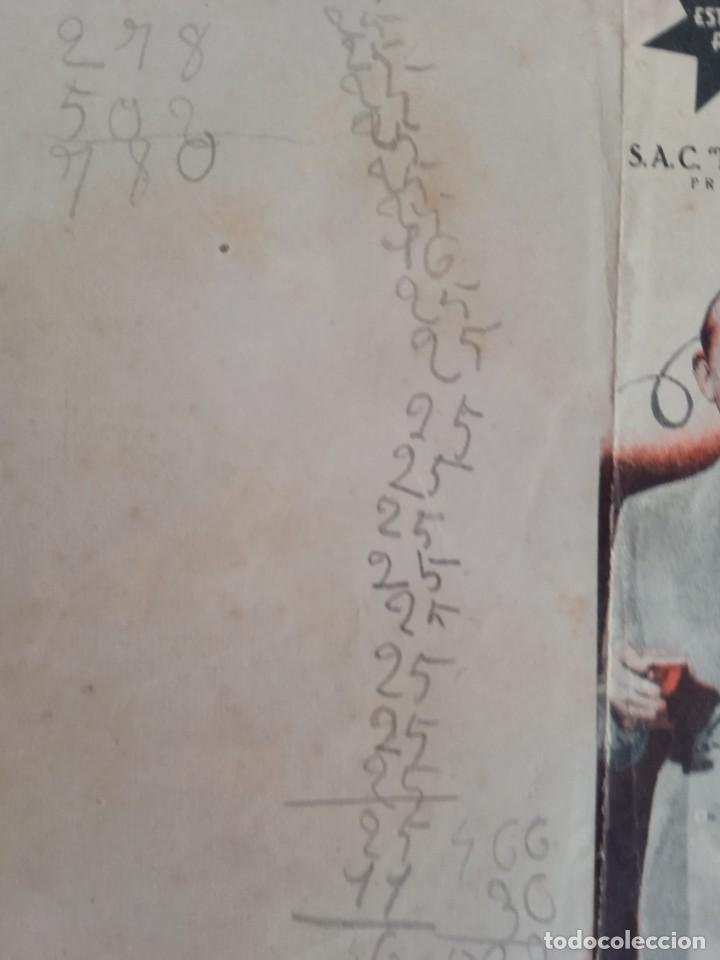 278
502
780
25
25
25
25
25
25
25
16
25
25
25
25
25
25
25
25
25
25
25
11
466
30
EST
S.A.C. "
PR
todocoleccion.net